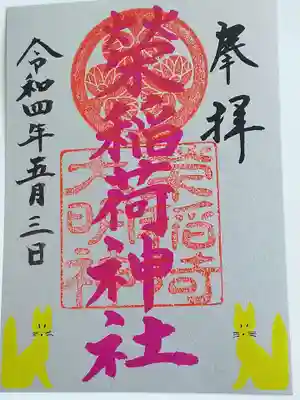 奉拝
榮稲荷神社
大明神
令和四年五月三日